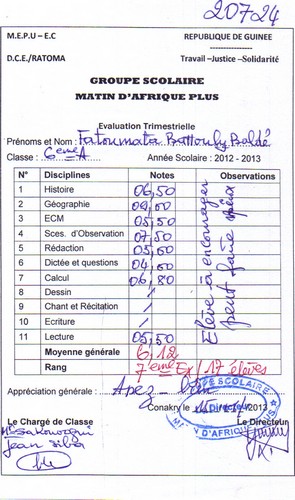 20724
M.E.P.U – E.C REPUBLIQUE DE GUINEE
D.C.E./RATOMA Travail –Justice –Solidarité
GROUPE SCOLAIRE
MATIN D'AFRIQUE PLUS
Evaluation Trimestrielle
Prénoms et Nom : Fatoumata Baldé
Classe : 6eme A Année Scolaire : 2012 - 2013
N° Disciplines Notes Observations
1 Histoire 06,50
2 Géographie
3 ECM 05,50
4 Sces. d'Observation 07,50
5 Rédaction 05,00
6 Dictée et questions 04,00
7 Calcul 06,80
8 Dessin /
9 Chant et Récitation /
10 Ecriture /
11 Lecture 05,50
Moyenne générale 6,12
Rang 7eme Ex / 17 élèves
Elève à encourager
peut faire mieux
Appréciation générale : Assez-bien
Conakry le 2013
GROUPE SCOLAIRE
MATIN D'AFRIQUE PLUS
Le Chargé de Classe Le Directeur